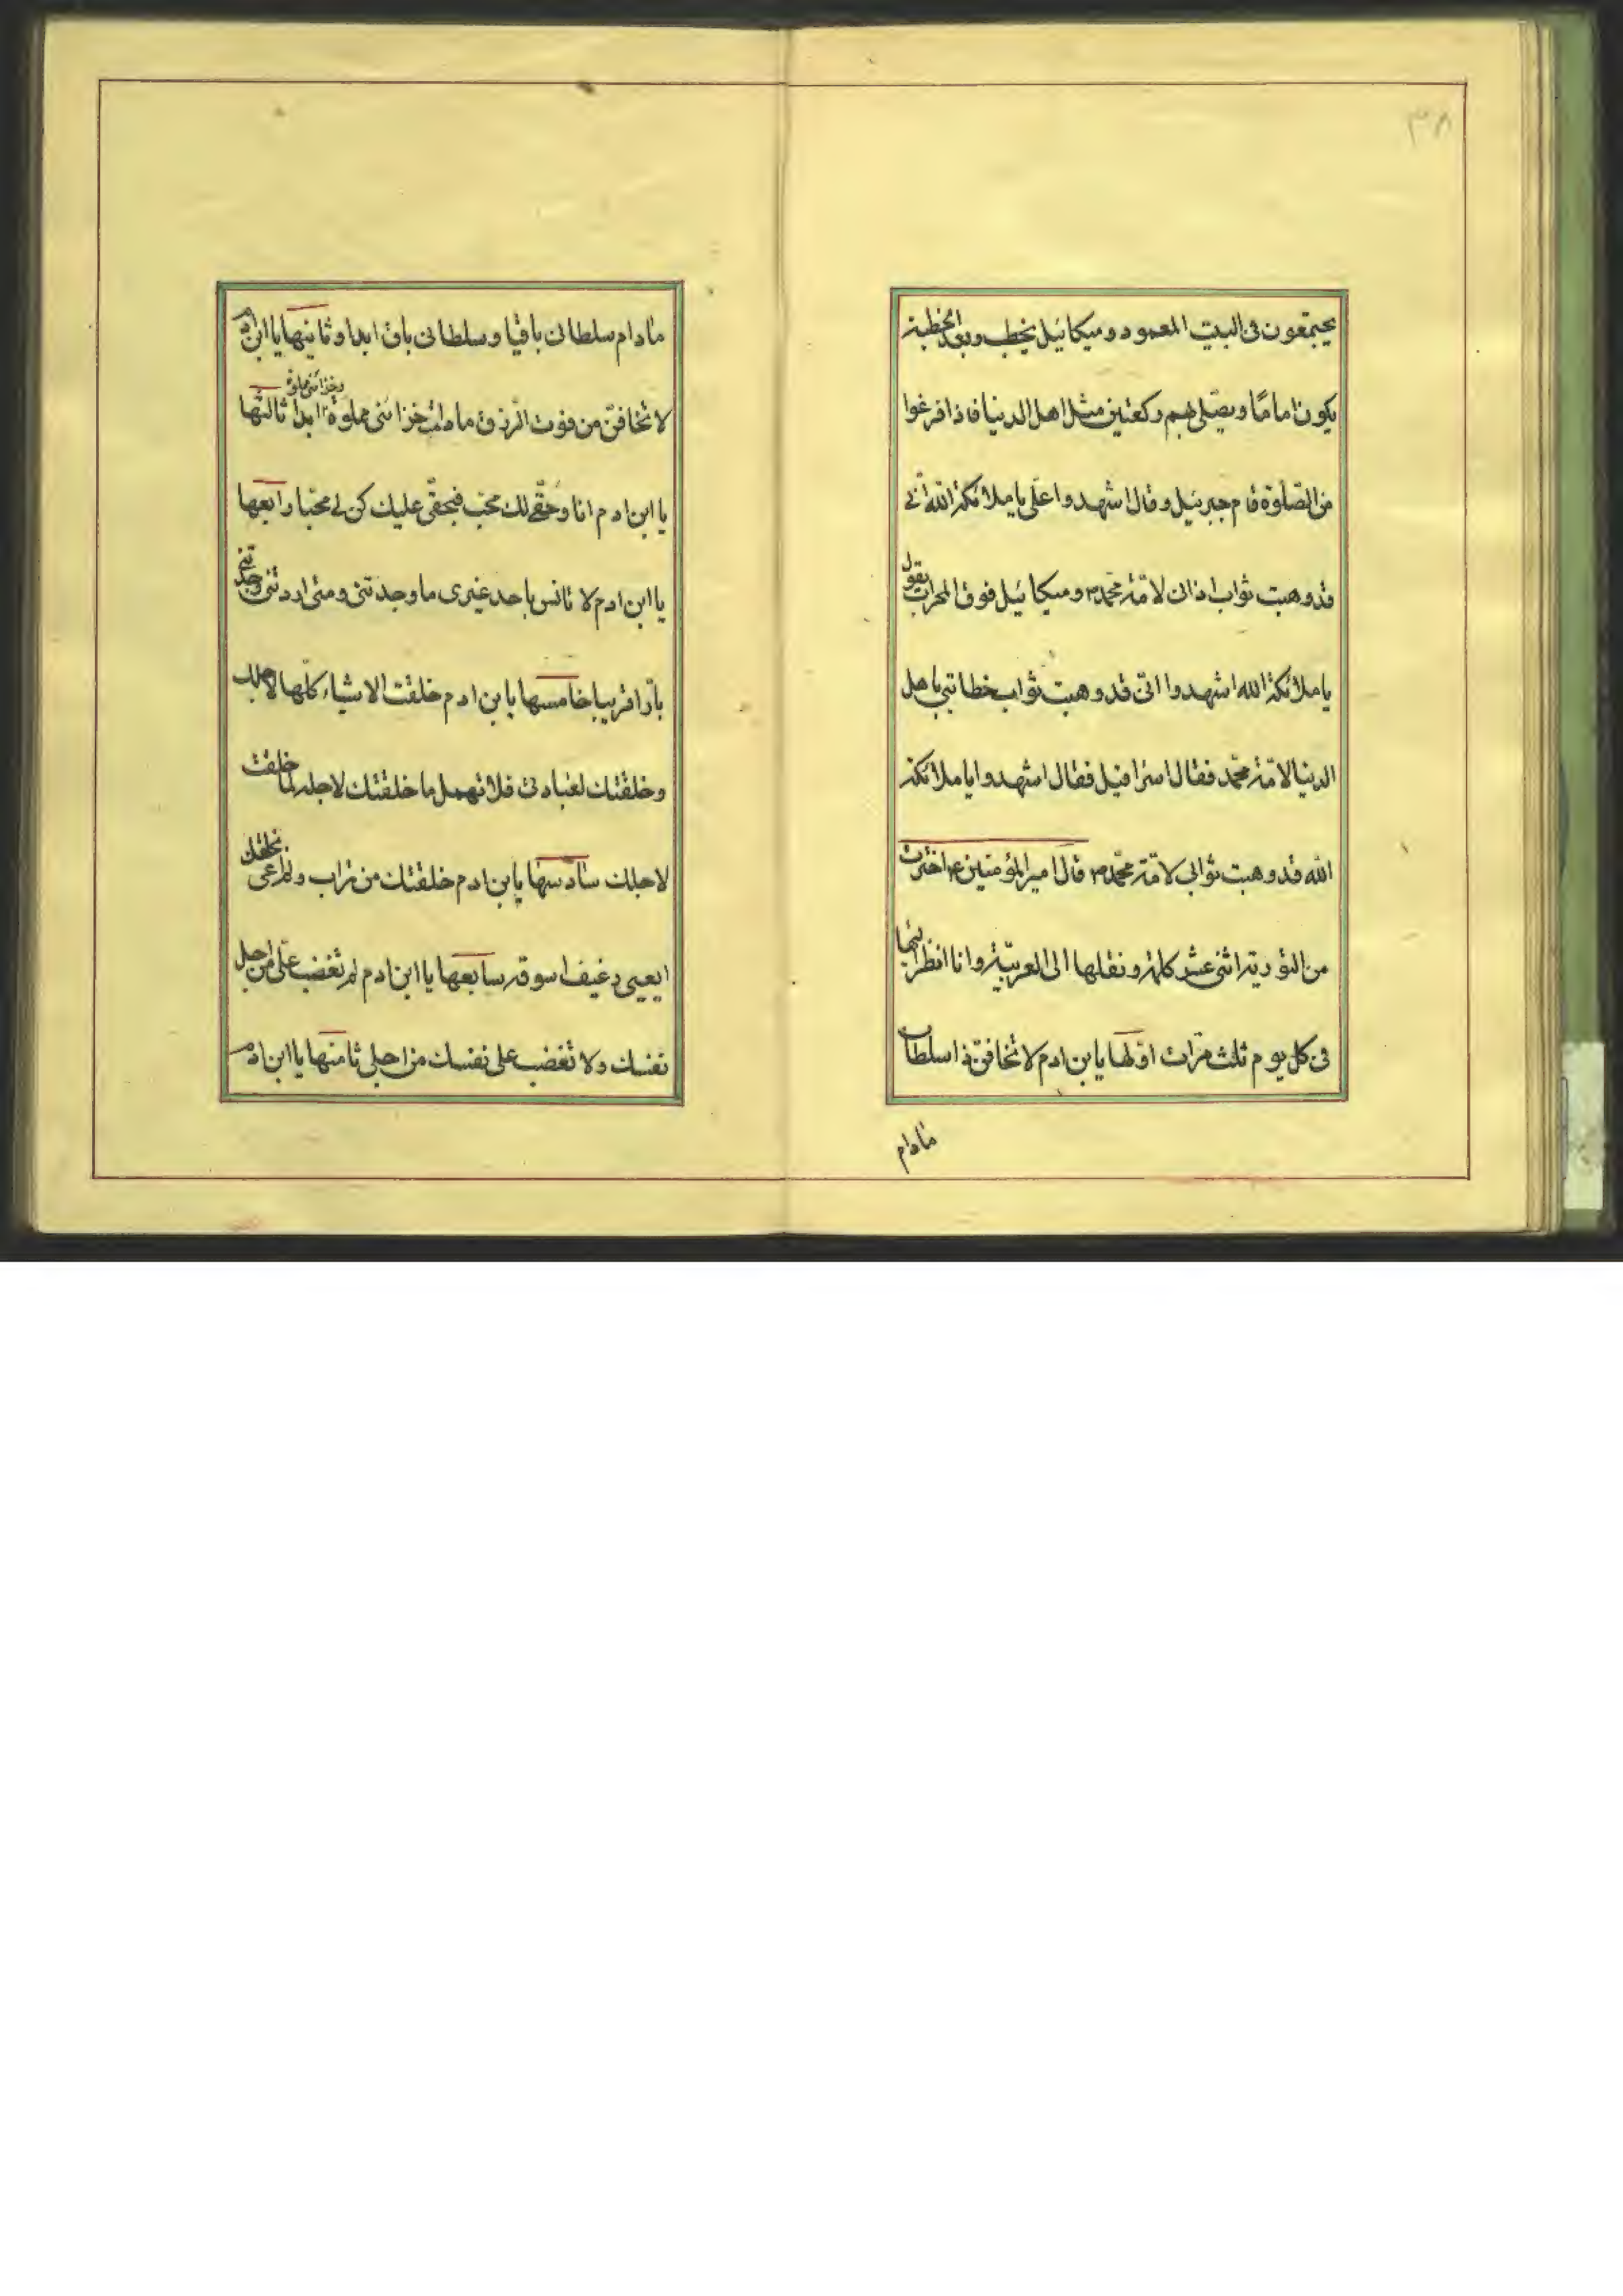 ۳۸
يجتمعون فى البيت المعمور و ميكائيل يخطب و بعد الخطبة
يكون اماما و يصلّى بهم ركعتين مثل اهل الدنيا فاذا فرغوا
من الصّلوة قام جبرئيل و قال اشهدوا علىّ يا ملائكة الله انّى
قد وهبت ثواب اذانى لامّة محمّد ص و ميكائيل فوق المحراب يقول
يا ملائكة الله اشهدوا انّى قد وهبت ثواب خطابتى باهل
الدنيا لامّة محمّد فقال اسرافيل فقال اشهدوا يا ملائكة
الله قد وهبت ثوابى لامّة محمّد ص قال امير المؤمنين ع اخترت
من التورية اثنى عشر كلمة و نقلها الى العربيّة و انا انظر اليها
فى كل يوم ثلث مرّات اوّلها يابن ادم لا تخافنّ ذا سلطان
مادام
مادام سلطانى باقيا و سلطانى باق ابدا و ثانيتها يا ابن ادم
لا تخافنّ من فوت الرّزق مادامت خزائنى مملوة و خزائنى مملوة ابدا ثالثها
يا ابن ادم انا و حقّى لك محبّ فبحقّى عليك كن لى محبّا رابعها
يا ابن ادم لا تانس باحد غيرى ما وجدتنى و متى اردتنى وجدتنى
بارّا قريبا خامسها يابن ادم خلقت الاشياء كلّها لاجلك
و خلقتك لعبادتى فلا تهمل ما خلقتك لاجله لما خلقت
لاجلك سادسها يابن ادم خلقتك من تراب و لم اعى بخلقك
ايعيى رغيف اسوقه سابعها يا ابن ادم لم تغضب علىّ من اجل
نفسك و لا تغضب على نفسك من اجلى ثامنها يا ابن ادم